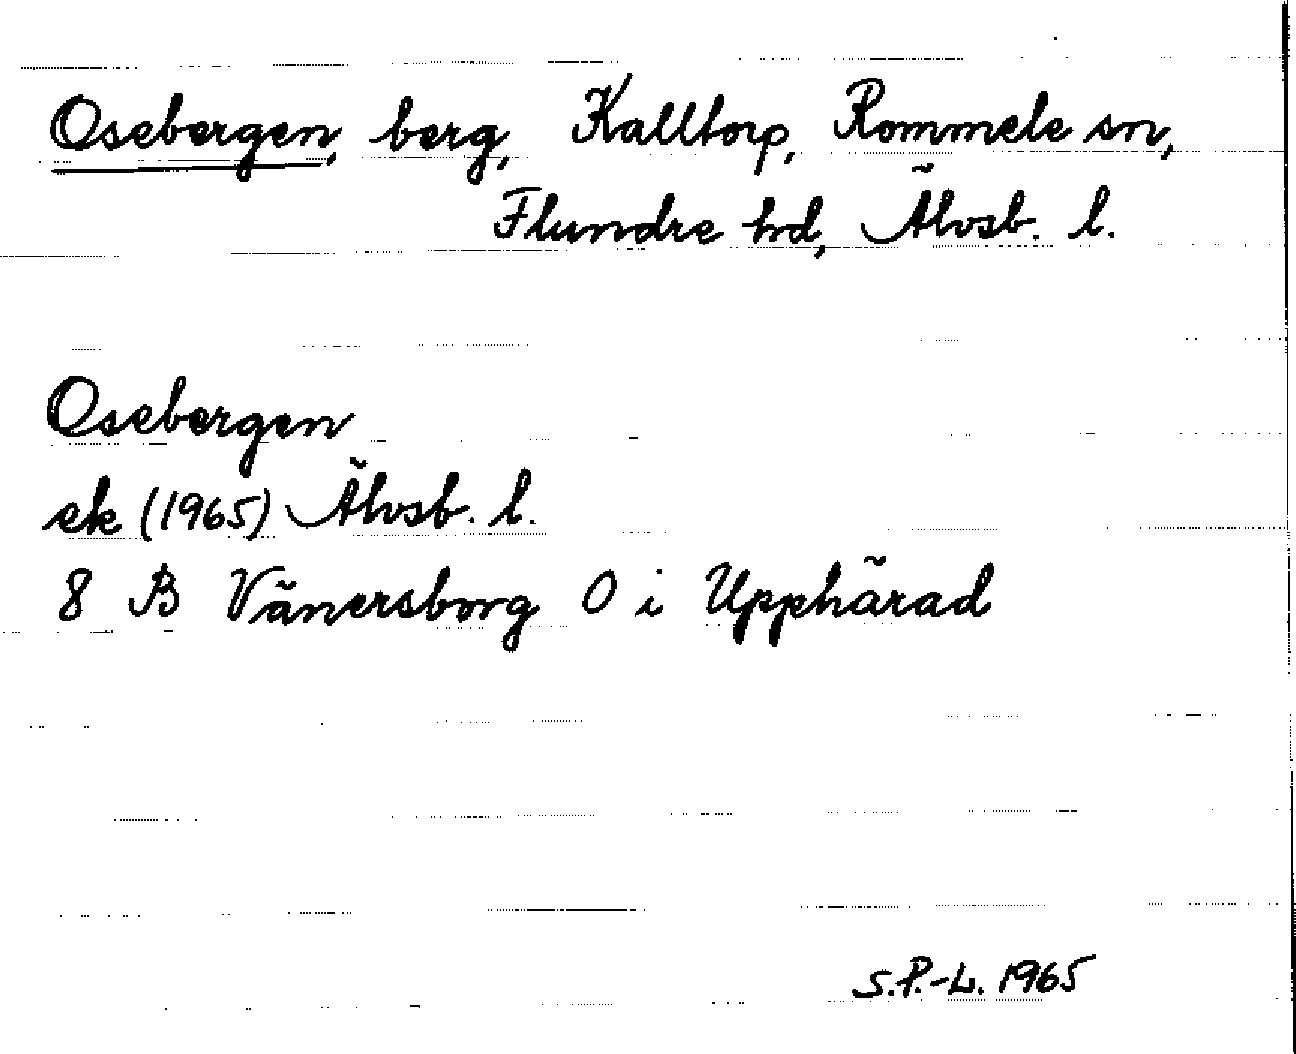 Osebergen, berg, Kalltorp, Rommele sn,
Flundre hd, Älvsb. l.
Osebergen
ek (1965) Älvsb. l.
8 B Vänersborg O i Upphärad
S.P.-L. 1965